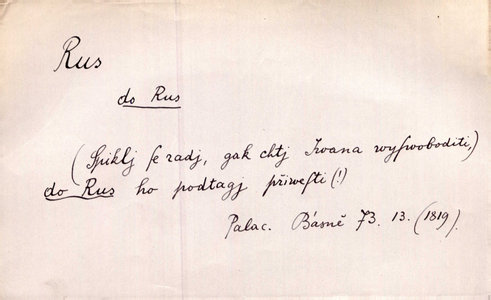 Rus
do Rus
(Spiklj se radj, gak chtj Iwana wyswoboditi,)
do Rus ho podtagj přiwesti (!)
Palac. Básně 73. 13. (1819).